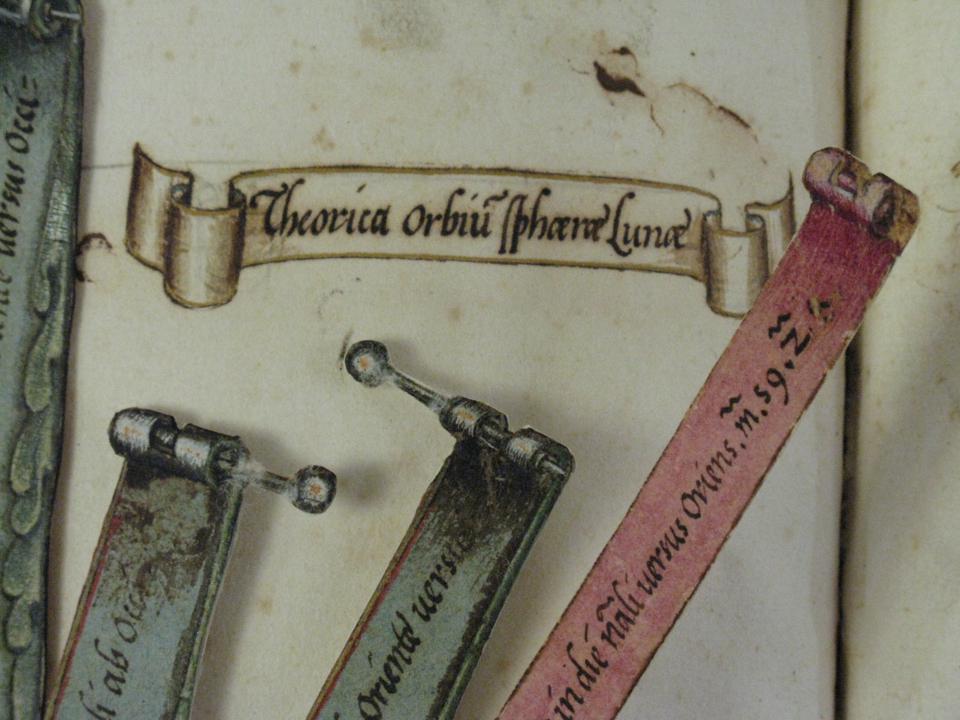 Theorica orbiū sphæræ Lunæ
uersus Occi=
li ab Occi
Orientē uersus
in die ñali uersus Oriens. m̃. 59. 2̃. 8